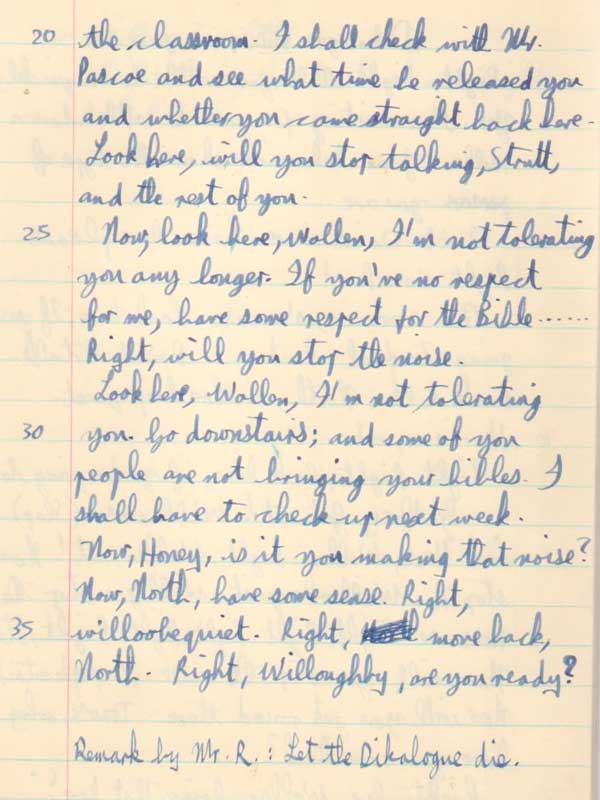 20 the classroom. I shall check with Mr.
Pascoe and see what time he released you
and whether you came straight back here.
Look here, will you stop talking, Strutt,
and the rest of you.
25 Now, look here, Wollen, I'm not tolerating
you any longer. If you've no respect
for me, have some respect for the Bible......
Right, will you stop the noise.
Look here, Wollen, I'm not tolerating
30 you. Go downstairs; and some of you
people are not bringing your bibles. I
shall have to check up next week.
Now, Honey, is it you making that noise?
Now, North, have some sense. Right,
35 willoobequiet. Right, move back,
North. Right, Willoughby, are you ready?
Remark by Mr. R. : Let the Dikalogue die.